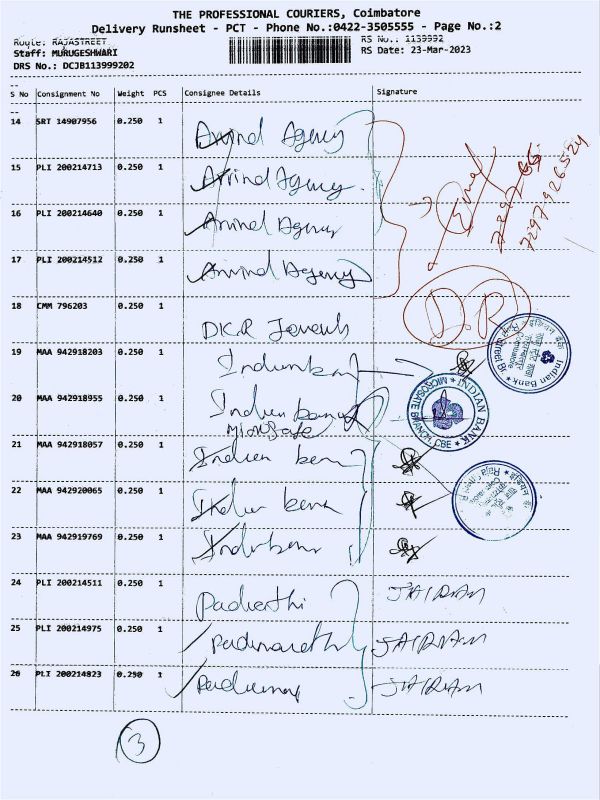 THE PROFESSIONAL COURIERS, Coimbatore
Delivery Runsheet - PCT - Phone No.:0422-3505555 - Page No.:2
Route: RAJASTREET RS No.: 1139992
Staff: MURUGESHWARI RS Date: 23-Mar-2023
DRS No.: DCJB113999202
S No Consignment No Weight PCS Consignee Details Signature
14 SRT 14907956 0.250 1 Arvind Agency
15 PLI 200214713 0.250 1 Arvind Agency
16 PLI 200214640 0.250 1 Arvind Agency
17 PLI 200214512 0.250 1 Arvind Agency
D.R
18 CMM 796203 0.250 1 DK.R
19 MAA 942918203 0.250 1 Indian bank
20 MAA 942918955 0.250 1 Indian bank
Microsate
INDIAN BANK
MICROSATE BRANCH, CBE
Indian Bank
Coimbatore
21 MAA 942918057 0.250 1 Indian bank
22 MAA 942920065 0.250 1 Indian bank
23 MAA 942919769 0.250 1 Indian bank
24 PLI 200214511 0.250 1 JAIRAM
25 PLI 200214975 0.250 1 JAIRAM
26 PLI 200214823 0.250 1 JAIRAM
3